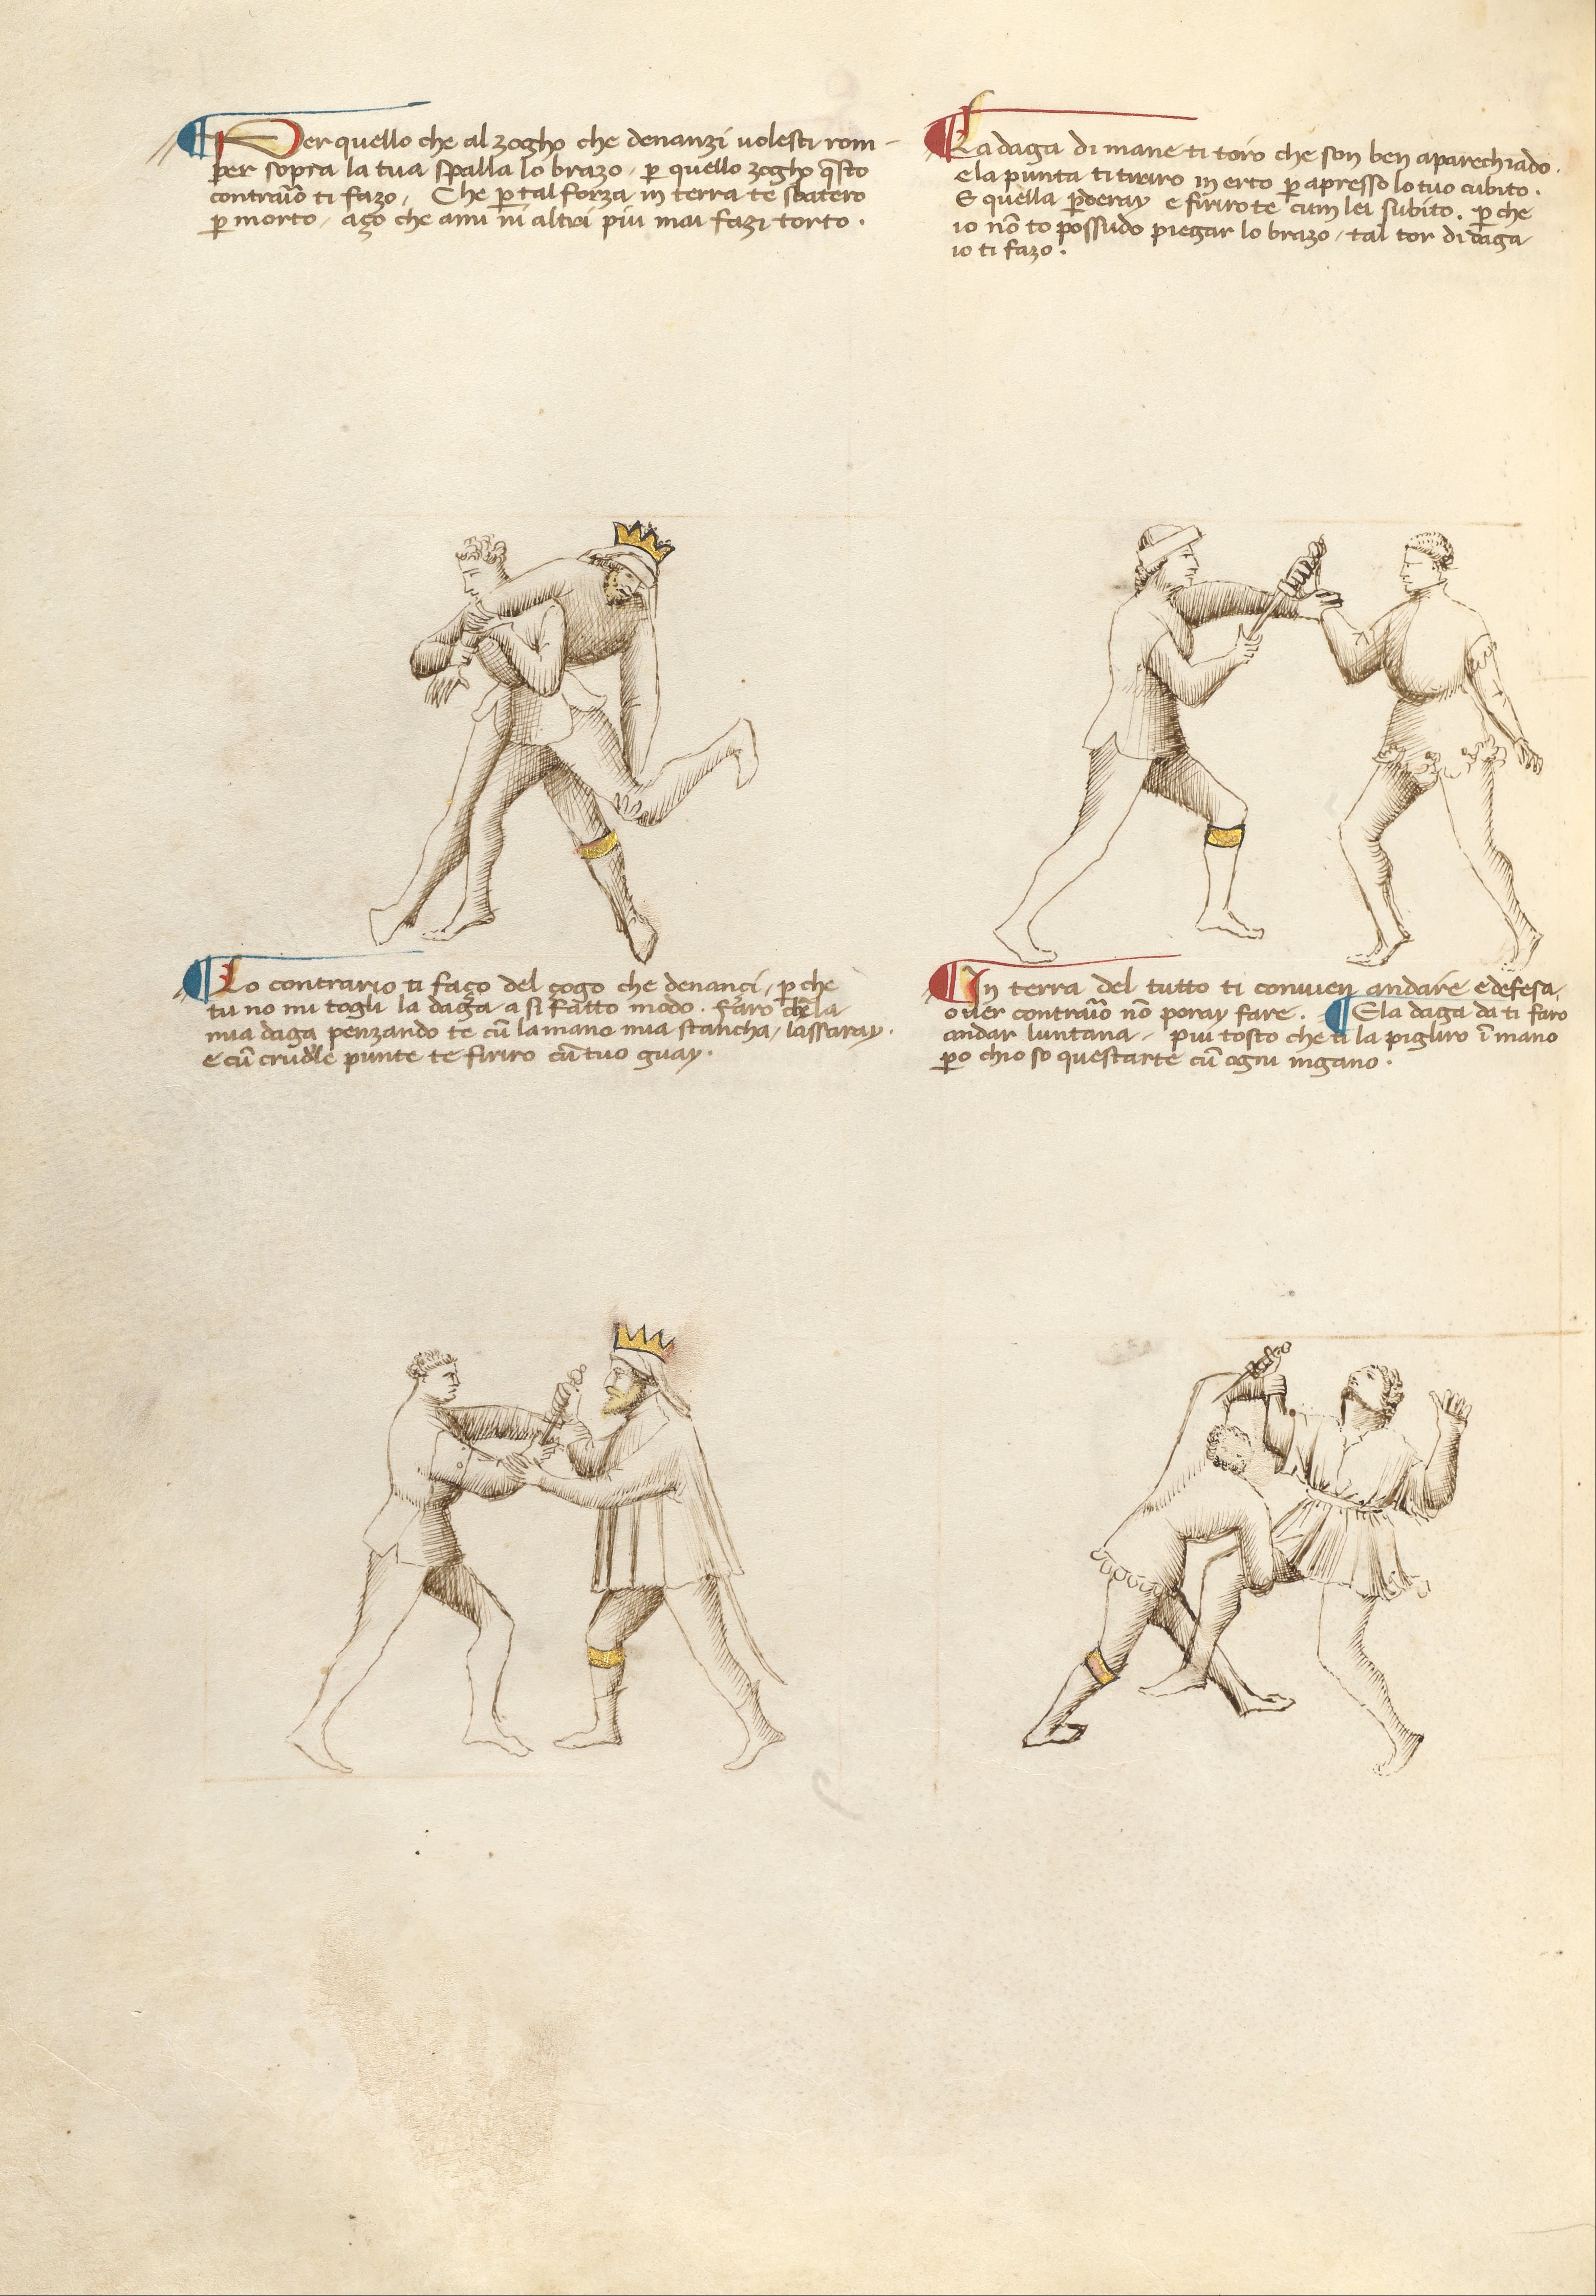 ¶ Per quello che al zogho che denanzi volesti rom-
per sopra la tua spalla lo brazo, p̱ quello zogho q̃sto
contraũo ti fazo, Che p̱ tal forza in terra te sbatero
p̱ morto, azo che a mi ni altri piu mai fazi torto.
¶ La daga di mane ti toro che son ben aparechiado.
e la punta ti tiraro in erto p̱ apresso lo tuo cubito.
E quella p̱deray e firirote cum lei subito. p̱ che
io nõ to possudo piegar lo brazo, tal tor di daga
io ti fazo.
¶ Lo contrario ti faço del çogo che denançi, p̱ che
tu no mi togli la daga a si fatto modo. Faro che la
mia daga penzando te cũ la mano mia stancha, lassaray.
e cũ crudele punte te firiro cũ tuo guay.
¶ In terra del tutto ti convien andare e defesa,
over contraũo nõ poray fare. ¶ E la daga da ti faro
andar luntana, piu tosto che ti la pigliro ĩ mano
p̱o ch'io so questarte cũ ogni ingano.